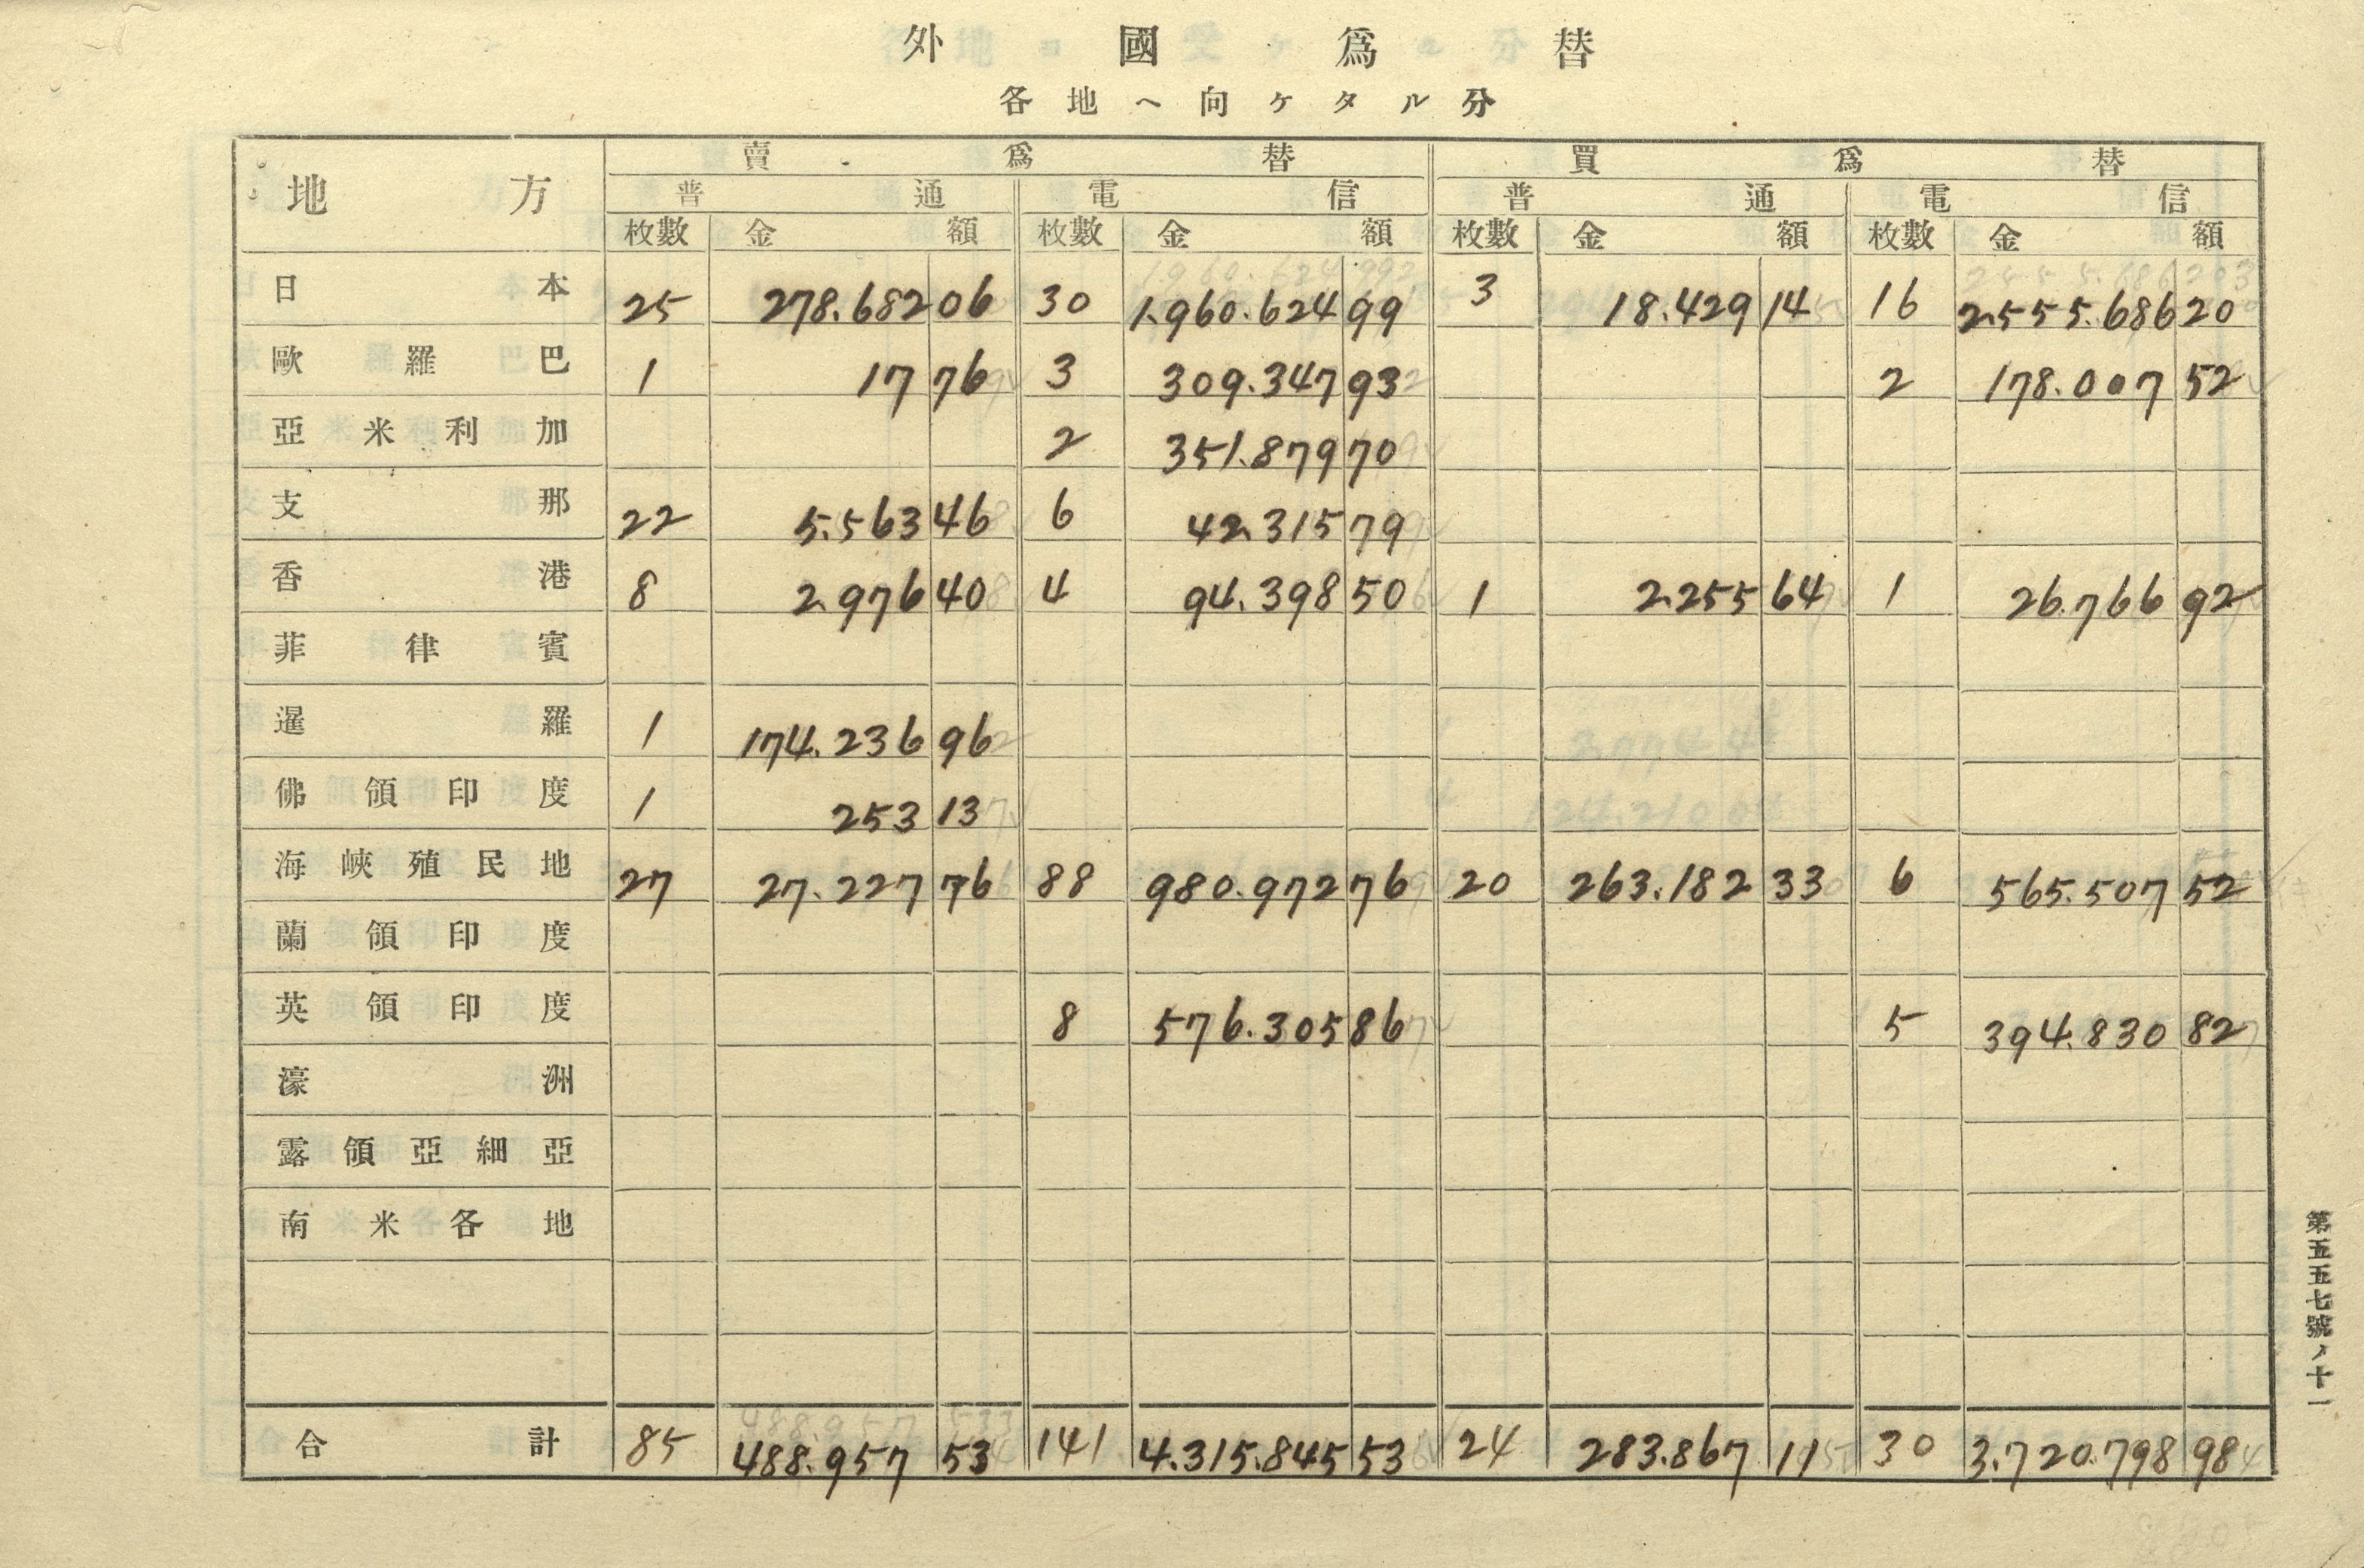 外國爲替
各地ヘ向ケタル分
地方 賣爲替 買爲替
普通 電信 普通 電信
枚數 金額 枚數 金額 枚數 金額 枚數 金額
日本 25 278.682 06 30 1.960.624 99 3 18.429 14 16 2.555.686 20
歐羅巴 1 17 76 3 309.347 93 2 178.007 52
亞米利加 2 351.879 70
支那 22 5.563 46 6 42.315 79
香港 8 2.976 40 4 94.398 50 1 2.255 64 1 26.766 92
菲律賓
暹羅 1 174.236 96
佛領印度 1 253 13
海峽殖民地 27 27.227 76 88 980.972 76 20 263.182 33 6 565.507 52
蘭領印度
英領印度 8 576.305 86 5 394.830 82
濠洲
露領亞細亞
南米各地
合計 85 488.957 53 141 4.315.845 53 24 283.867 11 30 3.720.798 98
第五五七號ノ十一